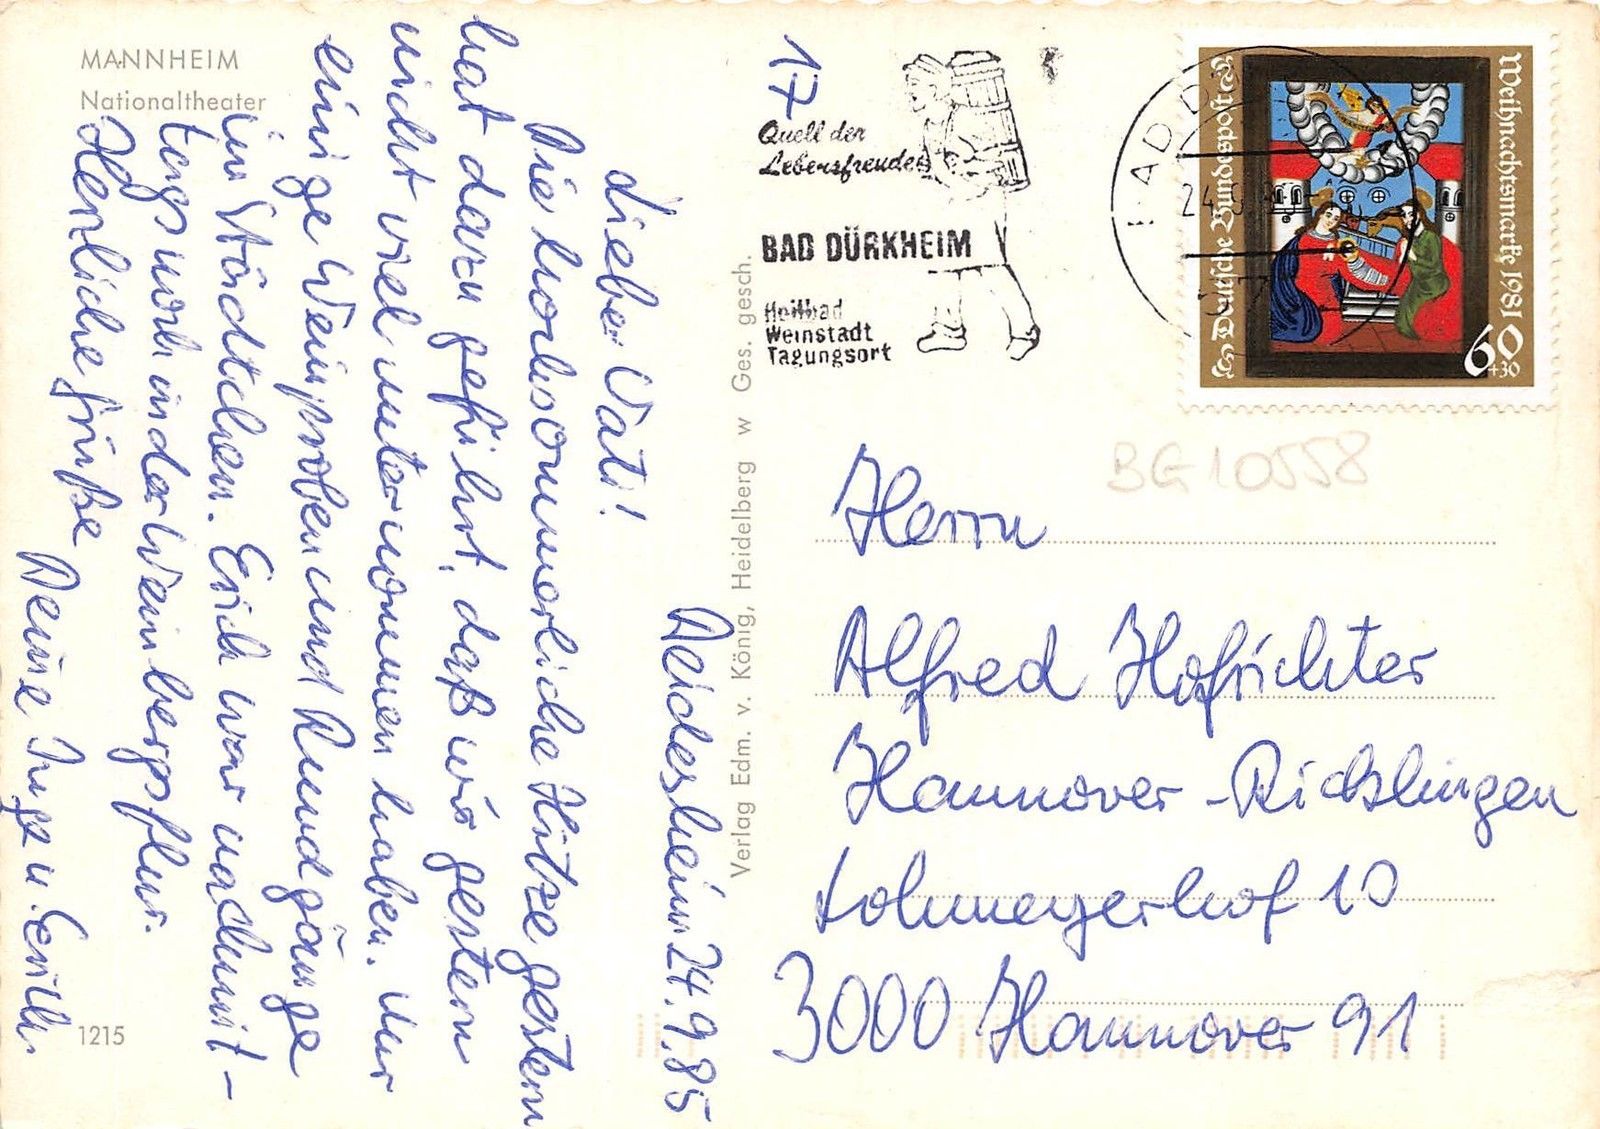 MANNHEIM
Nationaltheater
Deidesheim 24.9.85
Lieber Vati!
Die hochsommerliche Hitze gestern
hat dazu geführt, daß wir gestern
nicht viel unternommen haben. Nur
einige Weinproben und Rundgänge
im Städtchen. Erich war nachmit-
tags noch in der Weinbergsflur.
Herzliche Grüße
Deine Inge u. Erich.
1215
Verlag Edm. v. König, Heidelberg w Ges. gesch.
17
Quell der
Lebensfreude
BAD DÜRKHEIM
Heilbad
Weinstadt
Tagungsort
BAD D
24.
Deutsche Bundespost
Weihnachtsmarke 1981
60
+30
BG10558
Herrn
Alfred Hofrichter
Hannover-Ricklingen
Lohmeyerhof 10
3000 Hannover 91